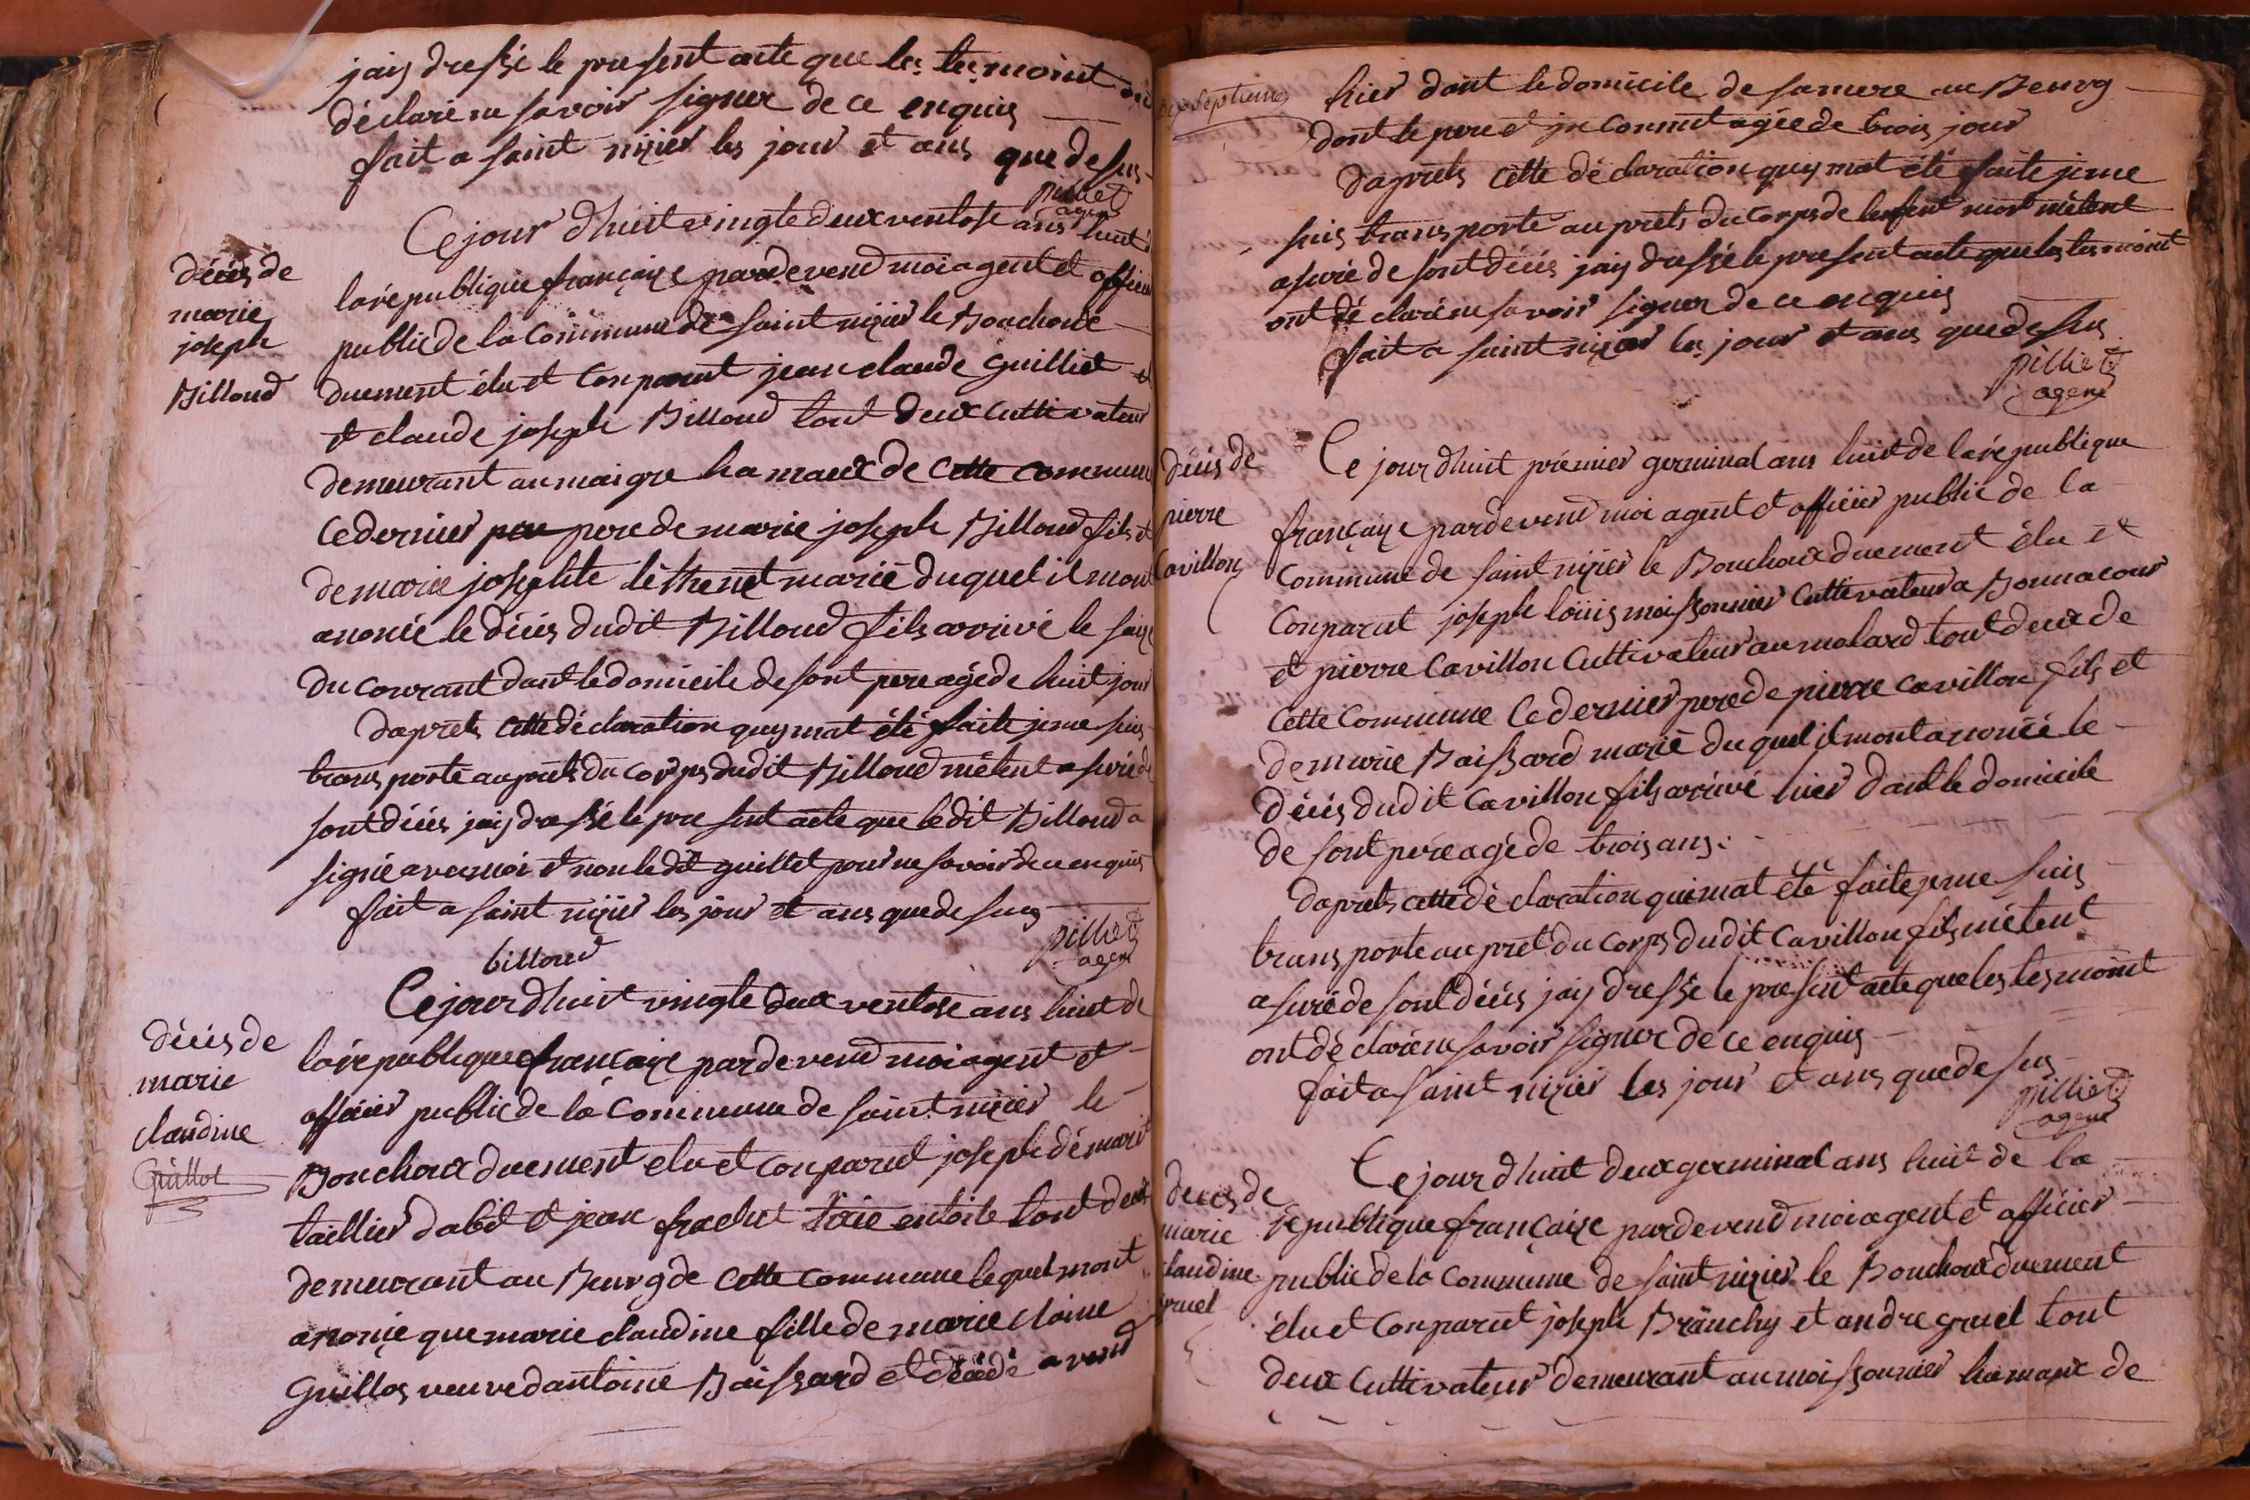 jay dressé le present acte que les tesmoint ont
déclaré ne savoir signer de ce enquis
fait a saint nizier les jour et ans que desus
pilliet
agent
décés de
marie
joseph
Billoud
Ce jour dhuit vingte deux ventose ans huit de
la république françaize pardevend moi agent et officier
public de la Commune de saint nizier le Bouchoux
duement élu et Conparut jean claude Guilliet et
et claude joseph Billoud tout deux Cultivateur
demeurant au maigre hamaux de Cette Commune
Ce dernier pere de marie joseph Billoud fils et
de marie josephte lethenet marié duquel il mont
anoncé le décés dudit Billoud fils arrivé le saize
du courant dant le domicile de sont pere agé de huit jour
daprets cette déclaration quy mat été faite je me suis
transporté auprets du corps dudit Billoud métent asuré de
sont décés jay dressé le present acte que ledit Billoud a
signé avec moi et non ledit guilliet pour ne savoir de ce enquis
fait a saint nizier les jour et ans que de sus
billoud
pilliet
agent
décés de
marie
claudine
Guillot
Ce jour dhuit vingte deux ventose ans huit de
la république françaize pardevend moi agent et
officier public de la Commune de saint nizier le
Bouchoux duement elu et Conparut joseph démarit
taillier dabit et jean frachet tixié en toile tout deux
demeurant au Beurg de Cette Commune lequel mont
anoncé que marie claudine fille de marie claine
Guillos veuve dantoine Baissard et décédé avend
hier dant le domicile de sa mere au Beurg
dont le pere et jnconnut agée de trois jour
daprets cette déclaration quy mat été faite je me
suis transporté auprets du corps de lenfent mor métent
asuré de sont décés jay dressé le present acte que les tesmoint
ont déclaré ne savoir signer de ce enquis
fait a saint nizier les jour et ans que de sus
pilliet
agent
décés de
pierre
Cavillon
Ce jour dhuit prémier germinal ans huit de la république
françaize pardevend moi agent et officier public de la
Commune de saint nizier le Bouchoux duement élu et
Conparut joseph loüis moissonnier Cultivateur a Bonnacour
et pierre Cavillon Cultivateur au molard tout deux de
Cette Commune Ce dernier pere de pierre Cavillon fils et
de marie Baissard marié duquel il mont anoncé le
décés dudit Cavillon fils arrivé hier dant le domicile
de sont pére agé de trois ans :
daprets cette déclaration qui mat été faite je me suis
transporté au pret du corps dudit Cavillon fils métent
asuré de sont décés jay dressé le present acte que les tesmoint
ont déclaré ne savoir signer de ce enquis
fait a saint nizier les jour et ans que de sus
pilliet
agent
décés de
marie
claudine
gruel
Ce jour dhuit deux germinal ans huit de la
republique françaize pardevend moi agent et officier
public de la Commune de saint nizier le Bouchoux duement
élu et Conparut joseph Branchy et andre gruel tout
deux Cultivateur demeurant au moissonnier hamaux de